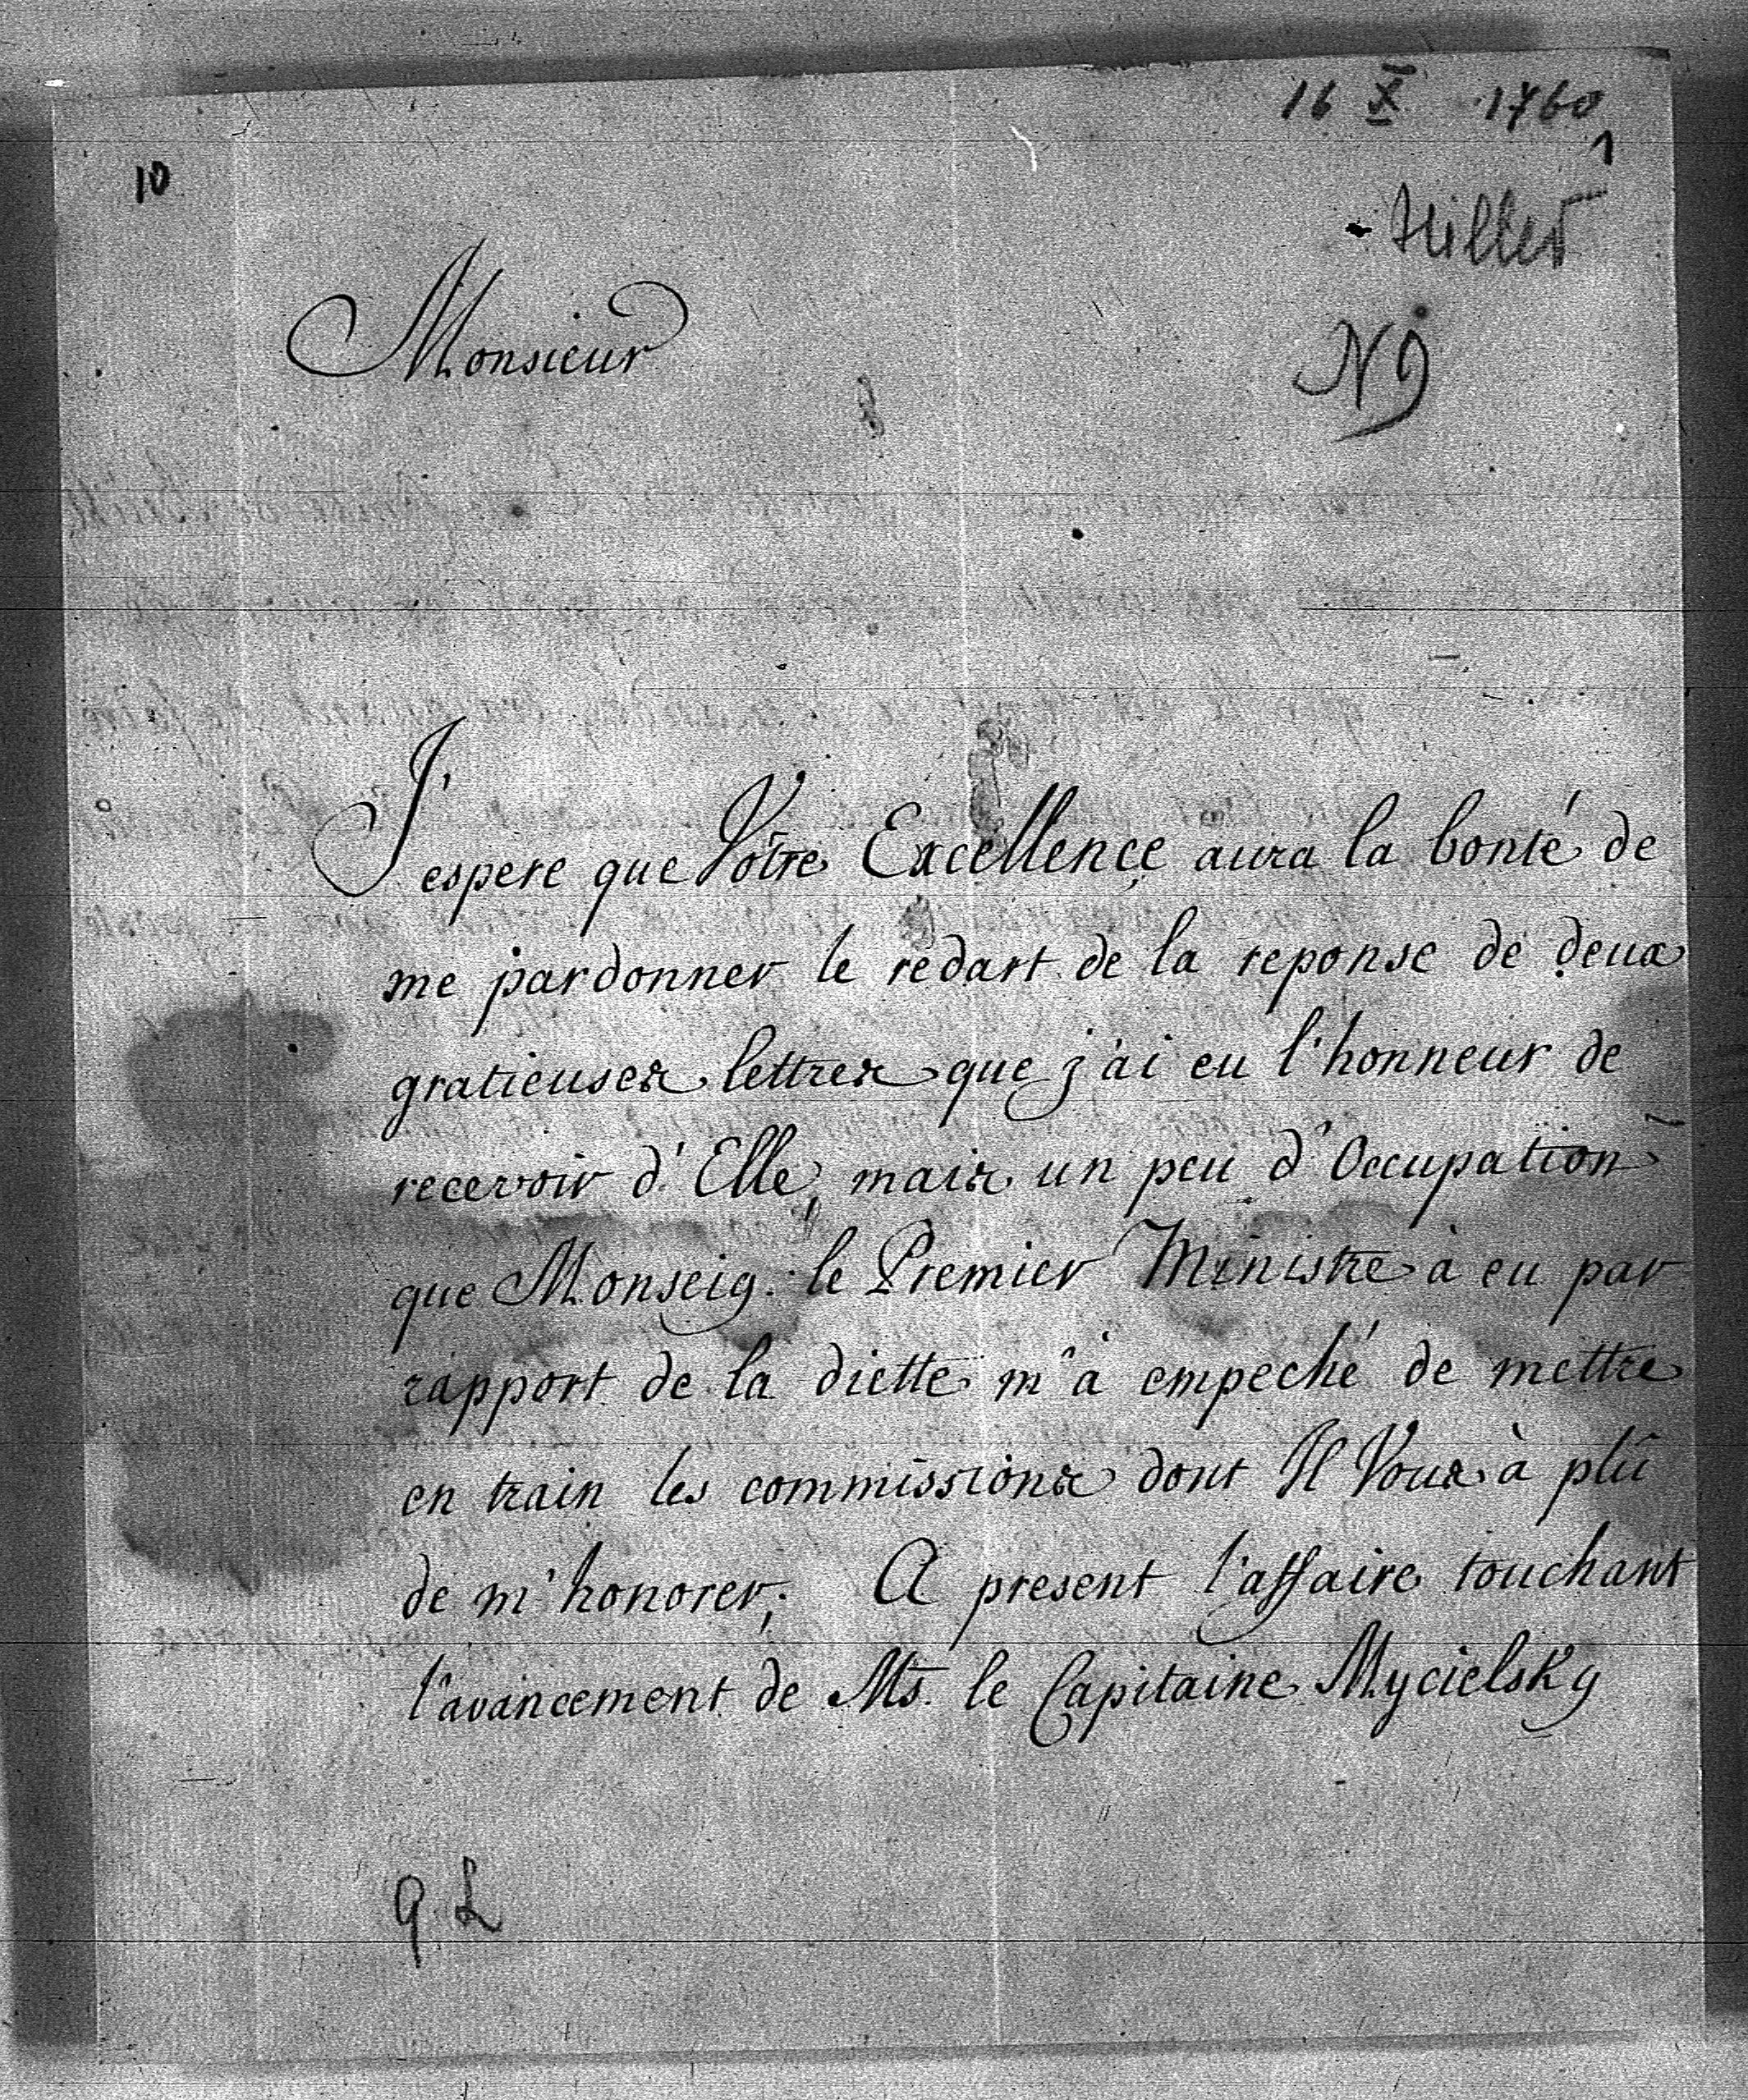 16 X 1760
1
10
Hiller
N9
Monsieur
J'espere que Vôtre Excellence aura la bonté de
me pardonner le redart de la reponse de deux
gratieuses lettres que j'ai eu l'honneur de
recevoir d'Elle, mais un peu d'Occupation
que Monseig. le Premier Ministre à eu par
rapport de la diette m'a empeché de mettre
en train les commissions dont Il Vous à plû
de m'honorer; A present l'affaire touchant
l'avancement de Ms. le Capitaine Mycielsky